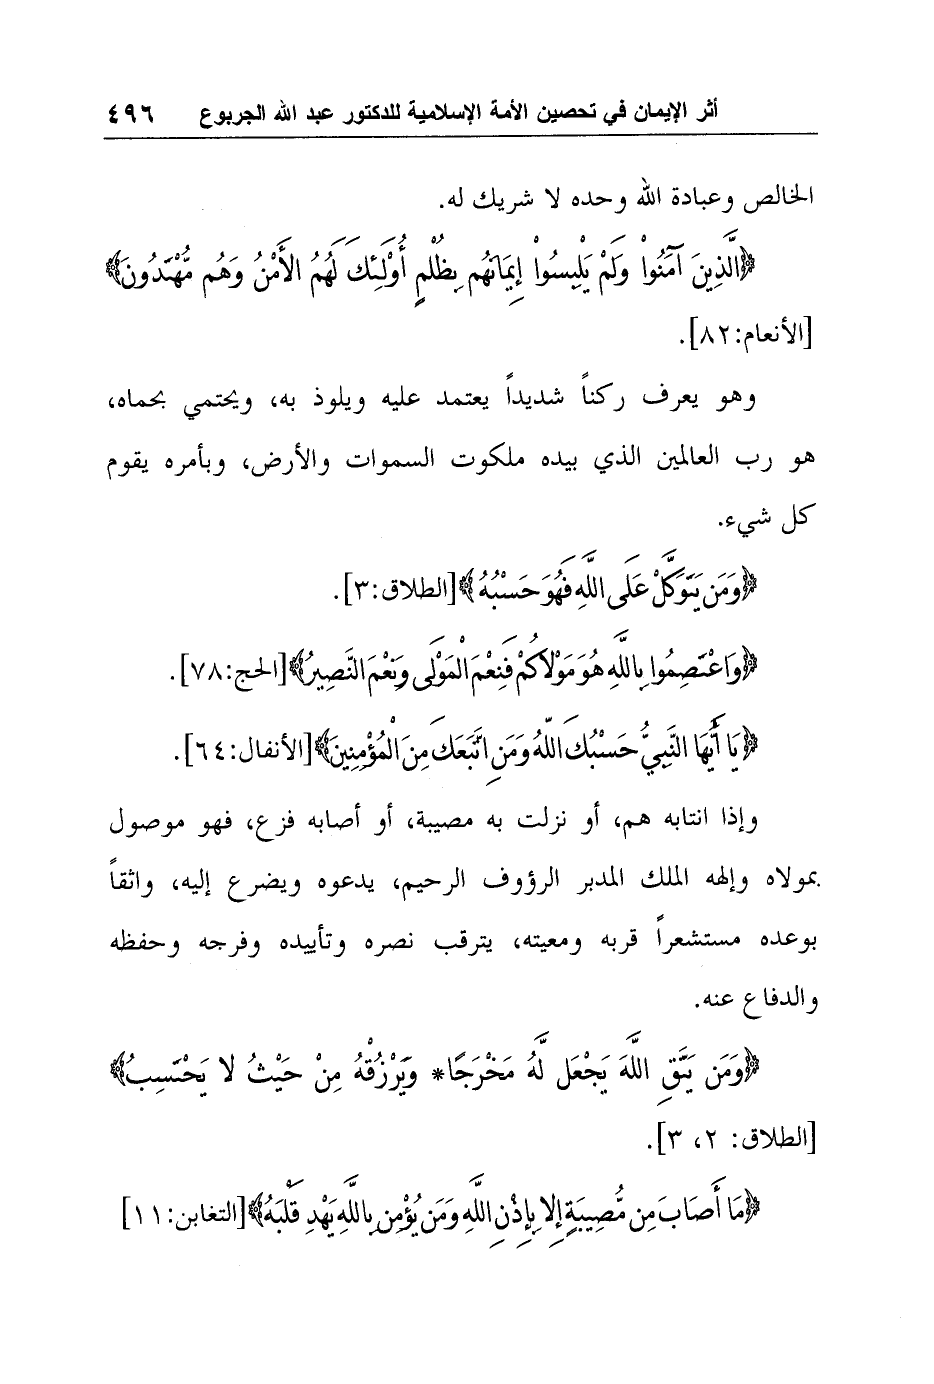 أثر الإيمان في تحصين الأمة الإسلامية للدكتور عبد الله الجربوع ٤٩٦
الخالص وعبادة الله وحده لا شريك له.
﴿الَّذِينَ آمَنُواْ وَلَمْ يَلْبِسُواْ إِيمَانَهُم بِظُلْمٍ أُوْلَئِكَ لَهُمُ الأَمْنُ وَهُم مُّهْتَدُونَ﴾
[الأنعام:٨٢].
وهو يعرف ركناً شديداً يعتمد عليه ويلوذ به، ويحتمي بحماه،
هو رب العالمين الذي بيده ملكوت السموات والأرض، وبأمره يقوم
كل شيء.
﴿وَمَن يَتَوَكَّلْ عَلَى اللَّهِ فَهُوَ حَسْبُهُ﴾[الطلاق:٣].
﴿وَاعْتَصِمُوا بِاللَّهِ هُوَ مَوْلاكُمْ فَنِعْمَ الْمَوْلَى وَنِعْمَ النَّصِيرُ﴾[الحج:٧٨].
﴿يَا أَيُّهَا النَّبِيُّ حَسْبُكَ اللَّهُ وَمَنِ اتَّبَعَكَ مِنَ الْمُؤْمِنِينَ﴾[الأنفال:٦٤].
وإذا انتابه هم، أو نزلت به مصيبة، أو أصابه فزع، فهو موصول
بمولاه وإلهه الملك المدبر الرؤوف الرحيم، يدعوه ويضرع إليه، واثقاً
بوعده مستشعراً قربه ومعيته، يترقب نصره وتأييده وفرجه وحفظه
والدفاع عنه.
﴿وَمَن يَتَّقِ اللَّهَ يَجْعَل لَّهُ مَخْرَجًا* وَيَرْزُقْهُ مِنْ حَيْثُ لا يَحْتَسِبُ﴾
[الطلاق: ٢، ٣].
﴿مَا أَصَابَ مِن مُّصِيبَةٍ إِلا بِإِذْنِ اللَّهِ وَمَن يُؤْمِن بِاللَّهِ يَهْدِ قَلْبَهُ﴾[التغابن:١١]